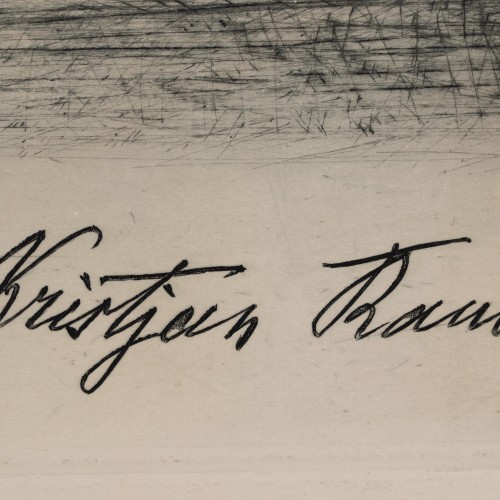 Kristjan Rau